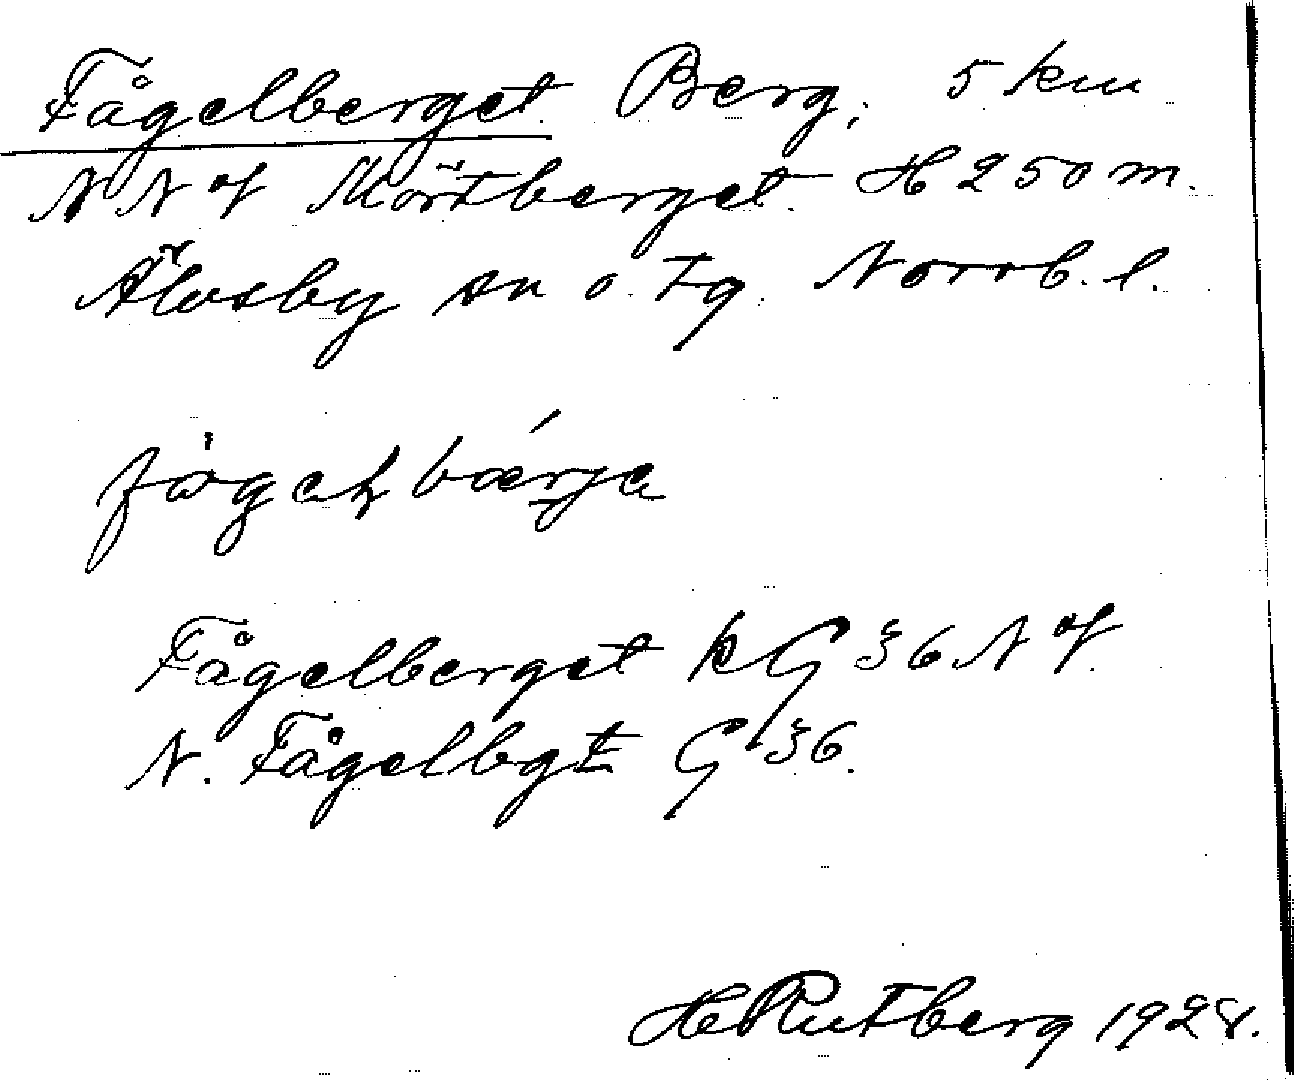 Fågelberget. Berg, 5 km
NNV Mörtberget. H 250 m.
Älvsby sn o. tg. Norrb. l.
Fågelberget kG 36 NV.
N. Fågelbgt G 36.
H Rutberg 1928.